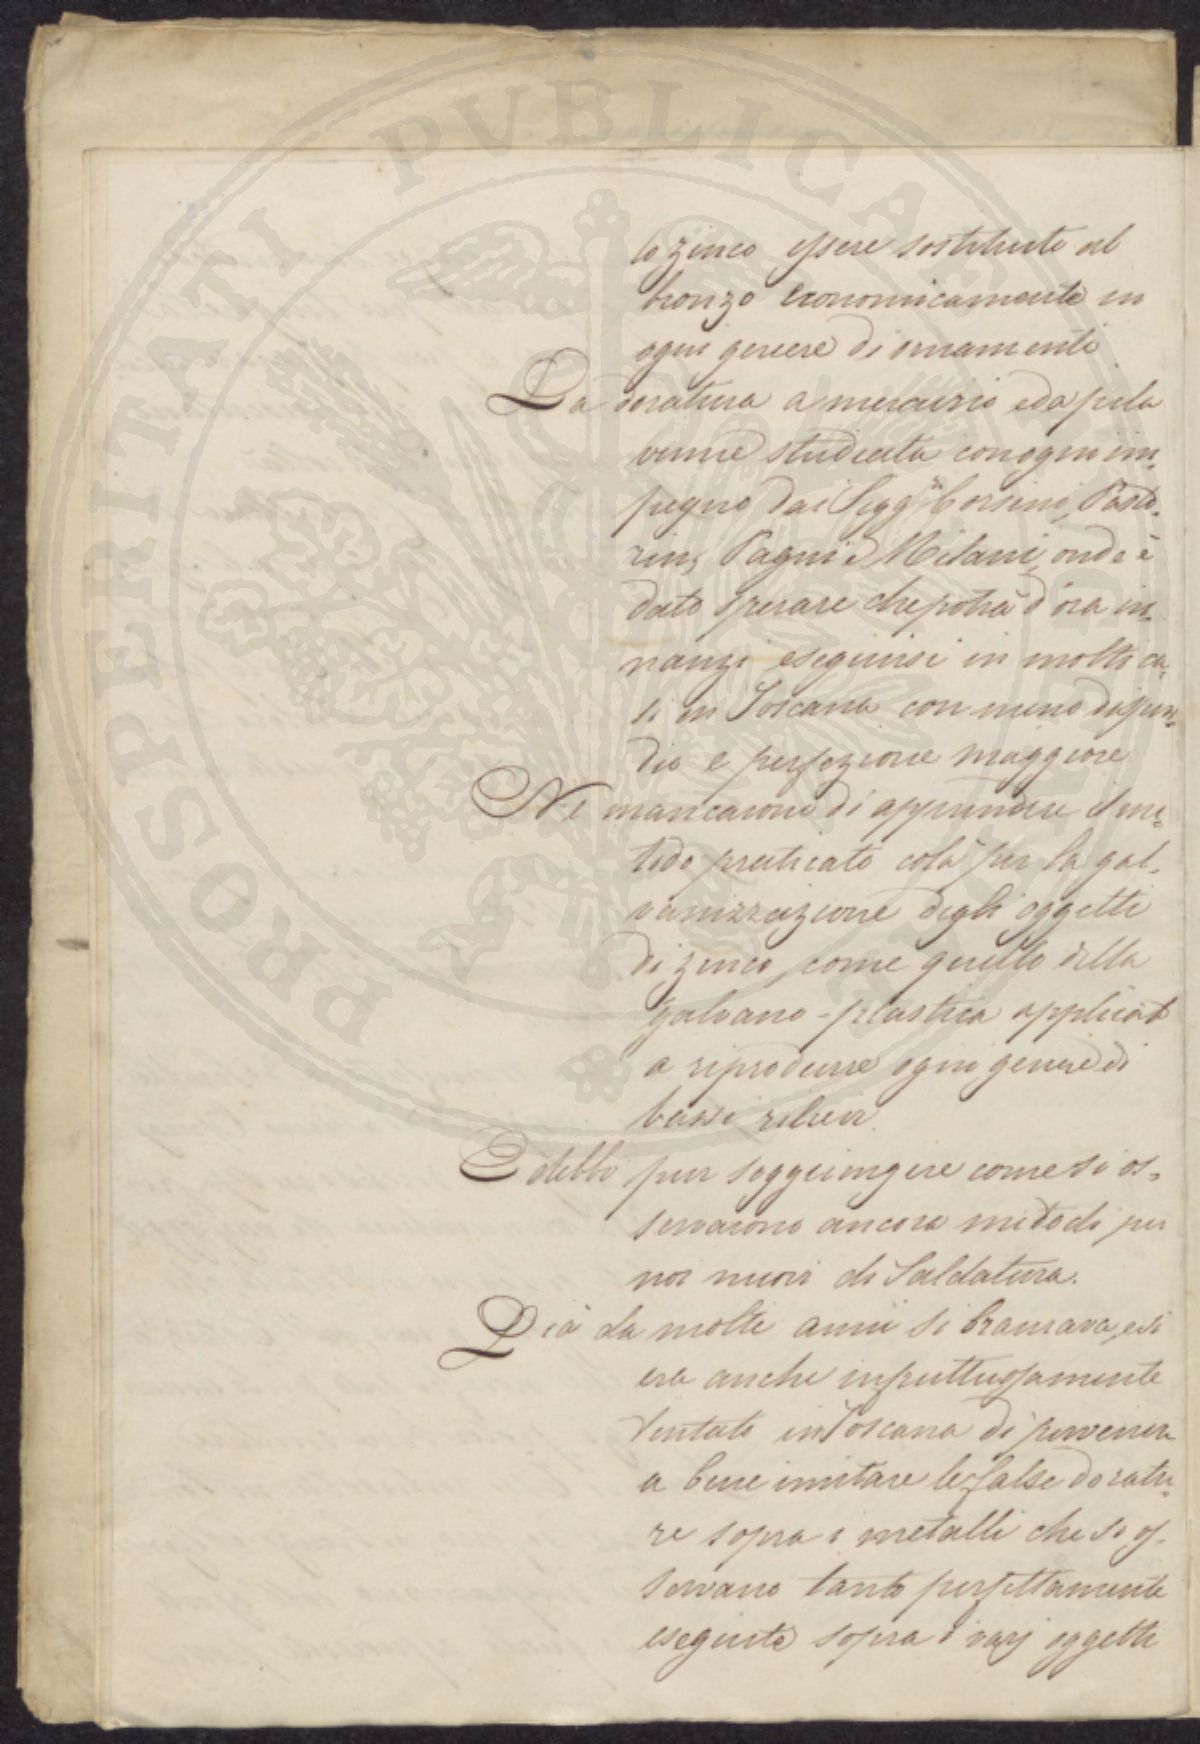 lo zinco essere sostituito al
bronzo economicamente in
ogni genere di ornamenti
La doratura a mercurio ed a pila
venne studiata con ogni im-
pegno dai Sigg.ri Corsini, Pasto-
rini, Pagni e Milani, onde è
dato sperare che potrà d'ora in-
nanzi eseguirsi in molti ca-
si in Toscana con meno dispen-
dio e perfezione maggiore
Ne mancarono di apprendere il me-
todo praticato colà per la gal-
vanizzazione degli oggetti
di zinco, come quello della
galvano-plastica applicato
a riprodurre ogni genere di
bassi rilievi.
E debbo pur soggiungere come si os-
servarono ancora metodi per
noi nuovi di Saldatura.
Già da molti anni si bramava, e si
era anche infruttuosamente
tentato in Toscana di pervenire
a bene imitare le false doratu-
re sopra i metalli che si os-
servano tanto perfettamente
eseguite sopra i varj oggetti
PROSPERITATI PVBLICAE